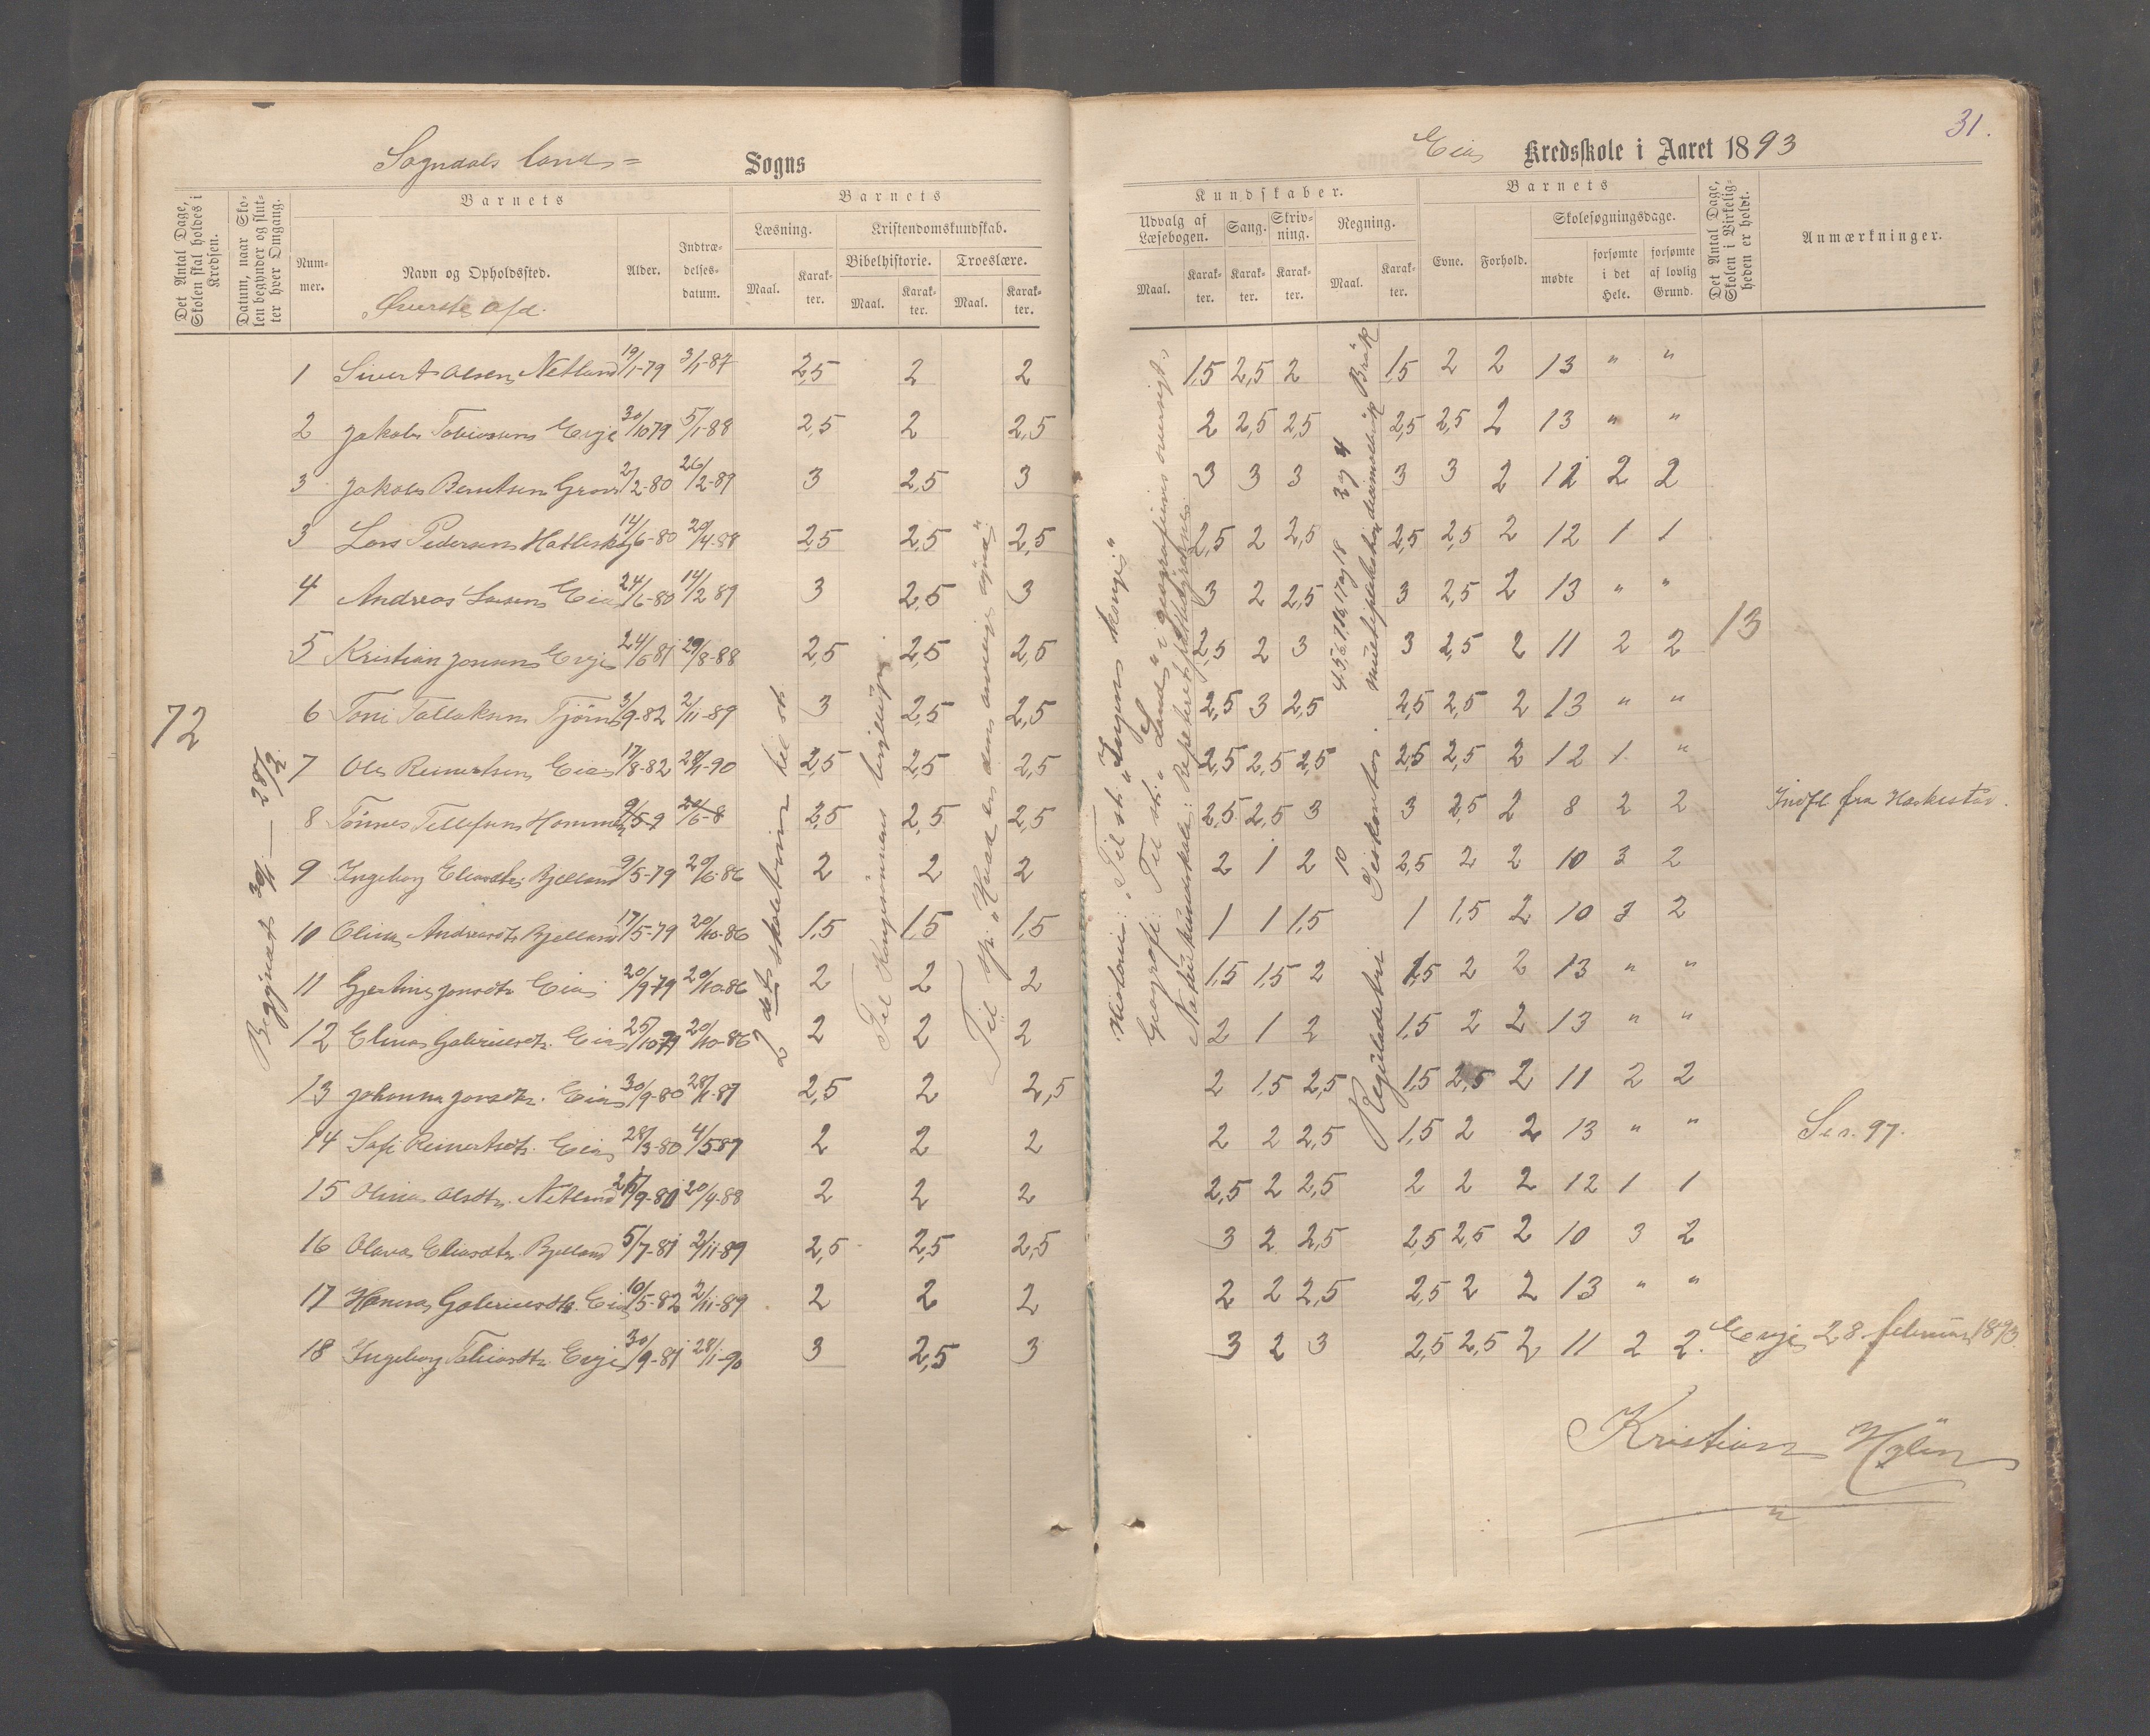 31.
Sogndals land= Sogns
Eia Kredsskole i Aaret 1893
Det Antal Dage, Skolen skal holdes i Kredsen.
Datum, naar Skolen begynder og slutter hver Omgang.
Barnets
Nummer.
Navn og Opholdssted.
Øverste afd.
Alder.
Indtrædelsesdatum.
Barnets
Læsning.
Kristendomskundskab.
Bibelhistorie.
Troeslære.
Maal.
Karakter.
Maal.
Karakter.
Maal.
Karakter.
Kundskaber.
Udvalg af Læsebogen.
Sang.
Skrivning.
Regning.
Maal.
Karakter.
Karakter.
Karakter.
Maal.
Karakter.
Barnets
Evne.
Forhold.
Skolesøgningsdage.
mødte
forsømte i det Hele.
forsømte af lovlig Grund.
Det Antal Dage, Skolen i Virkeligheden er holdt.
Anmærkninger.
72
Begyndt 30/1 — 28/2
1 Sivert Olsen Netland 19/1-79 3/1-87 2,5 2 2 1,5 2,5 2 1,5 2 2 13 " "
2 Jakob Tobiassen Eige 30/10 79 5/1-88 2,5 2 2,5 2 2,5 2,5 2,5 2,5 2 13 " "
3 Jakob Berntsen 2/2-80 26/2-89 3 2,5 3 3 3 3 3 3 2 12 2 2
3 Lars Pedersen 14/6-80 20/4-88 2,5 2,5 2,5 2,5 2 2,5 2,5 2,5 2 12 1 1
4 Andreas Larsen Eia 24/6-80 14/2 89 3 2,5 3 3 2 2,5 3 2,5 2 13 " "
5 Kristian Jonsen Eige 24/6 81 29/8-88 2,5 2,5 2,5 2,5 2 3 3 2,5 2 11 2 2
13
6 Toni Tallaksen 3/9-82 2/11-89 3 2,5 2,5 2,5 3 2,5 2,5 2,5 2 13 " "
7 Ole Reinertsen Eia 17/8-82 28/1-90 2,5 2,5 2,5 2,5 2,5 2,5 2,5 2,5 2 12 1 "
8 Tønnes Tellefsen 2,5 2,5 2,5 2,5 2,5 3 3 2,5 2 8 2 2 Indfl. fra Heskestad.
9 Ingeborg Eliasdtr. Bjelland 9/5-79 20/6-86 2 2 2 2 1 2 2,5 2 2 10 3 2
10 Olina Andreasdtr Bjelland 17/5-79 20/10-86 1,5 1,5 1,5 1 1 1,5 1 1,5 2 10 3 2
11 Gjertine Jonsdtr Eia 20/9-79 20/10-86 2 2 2 1,5 1,5 2 1,5 2 2 13 " "
12 Elina Gabrielsdtr. Eia 25/10-79 20/10-86 2 2 2 2 1 2 1,5 2 2 13 " "
13 Johanna Jonsdtr. Eia 30/9-80 28/1-87 2,5 2 2,5 2 1,5 2,5 1,5 2,5 2 11 2 2
14 Sofi Reinertsdtr. Eia 28/3-80 4/5 87 2 2 2 2 2 2,5 1,5 2 2 13 " " Se s. 97.
15 Olina Olsdtr. Netland 20/4-88 2 2 2 2,5 2 2,5 2 2 2 12 1 1
16 Olava Eliasdtr. Bjelland 5/7-81 2/11-89 2,5 2,5 2,5 3 2 2,5 2,5 2,5 2 10 3 2
17 Hanna Gabrielsdtr. Eia 10/5-82 2/11-89 2 2 2 2 2 2,5 2,5 2 2 13 " "
18 Ingeborg Tobiasdtr. Eige 30/9-81 28/1-90 3 2,5 3 3 2 3 2,5 2,5 2 11 2 2.
2 det skoletrin til st
Til Kongesønnens bryllup.
Til sp. "Hvad er den anvisning
Historie: Til st. "Ingens konge"
Geografi: Til st. "Land" i geografiens oversigt.
Naturkundskab: Repeteret
4. 5. 6. 7. 16. 17 og 18 3 og 4
Reguladetri 10 Diskontor. multiplikation decimalbrøk Brøk
Eige 28. februar 1893.
Kristian